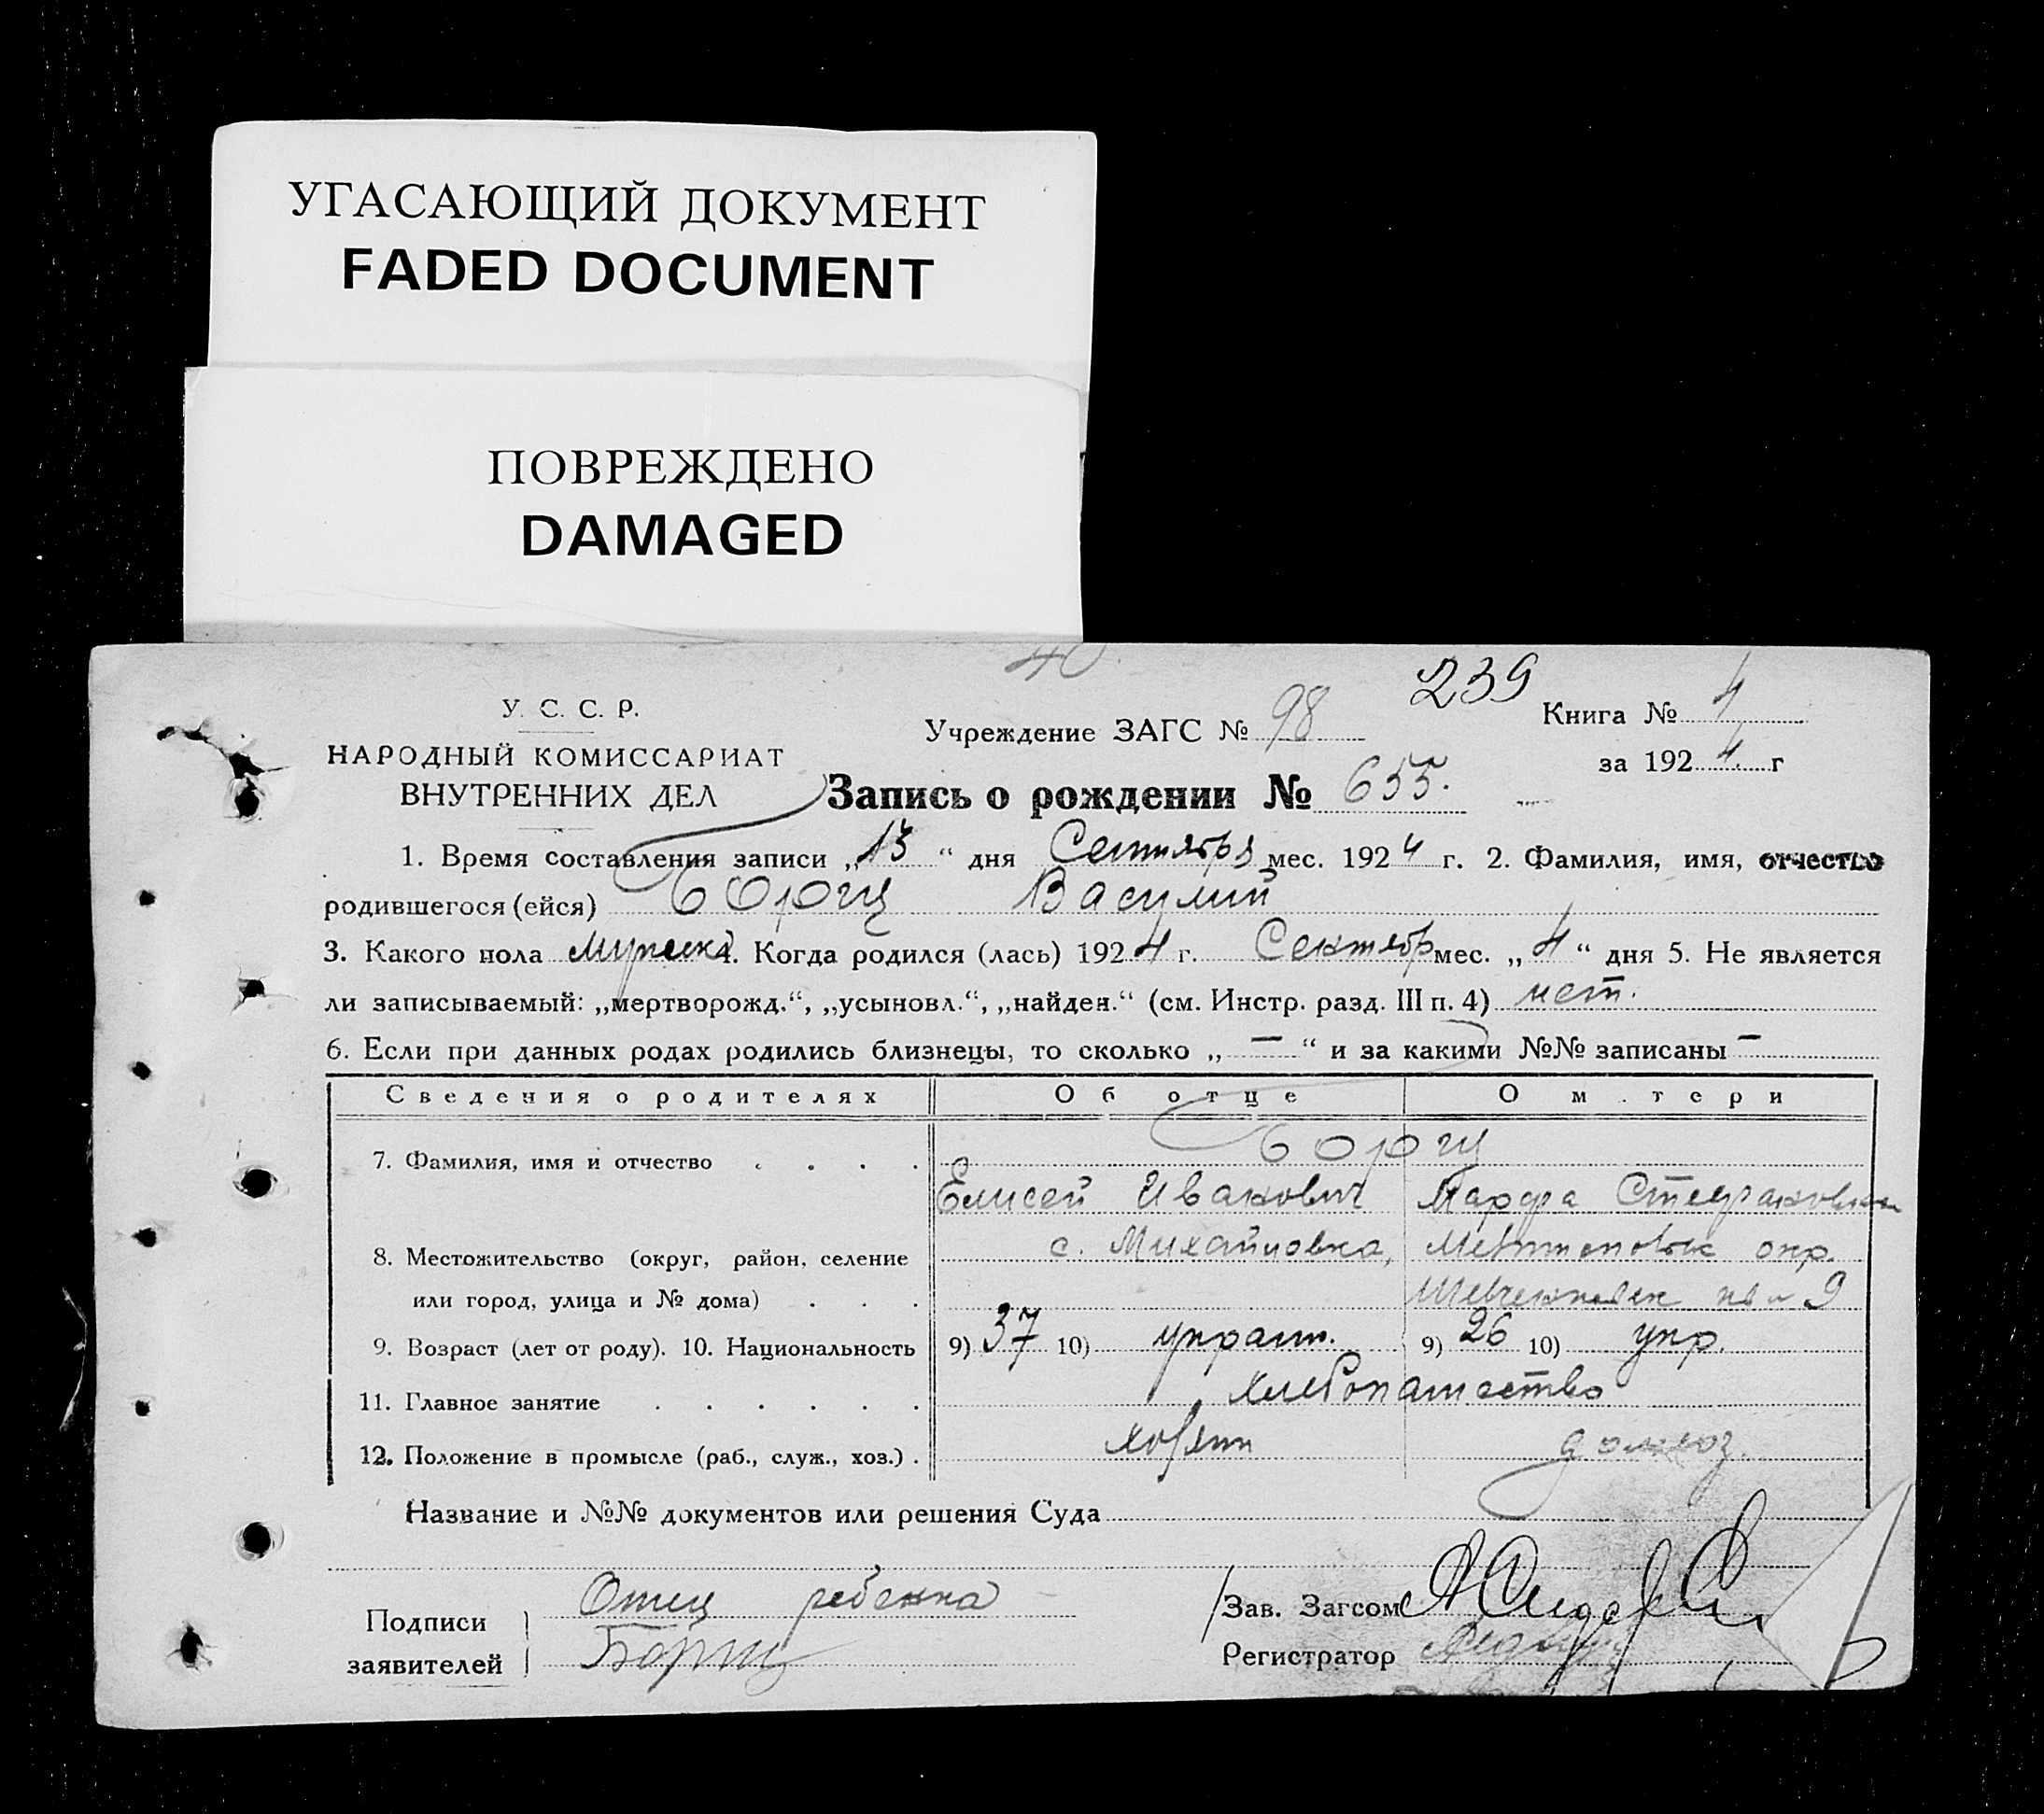 УГАСАЮЩИЙ ДОКУМЕНТ
FADED DOCUMENT
ПОВРЕЖДЕНО
DAMAGED
40
239
У. С. С. Р.
НАРОДНЫЙ КОМИССАРИАТ
ВНУТРЕННИХ ДЕЛ
Учреждение ЗАГС № 98
Книга № 4
за 1924 г
Запись о рождении № 655.
1. Время составления записи „13“ дня Сентября мес. 1924 г. 2. Фамилия, имя, отчество
родившегося (ейся) Борщ Василий
3. Какого пола мужска 4. Когда родился (лась) 1924 г. Сентябр мес. „4“ дня 5. Не является
ли записываемый: „мертворожд.“, „усыновл.“, „найден.“ (см. Инстр. разд. III п. 4) нет.
6. Если при данных родах родились близнецы, то сколько „—“ и за какими №№ записаны —
Сведения о родителях Об отце О м.тери
7. Фамилия, имя и отчество . . . . Борщ
Елисей Иванович Марфа Стефановна
8. Местожительство (округ, район, селение с. Михайловка, окр.
или город, улица и № дома) . . . 9
9. Возраст (лет от роду). 10. Национальность 9) 37 10) украин. 9) 26 10) укр.
11. Главное занятие . . . . . . хлебопашество
12. Положение в промысле (раб., служ., хоз.) . хозяин домхоз.
Название и №№ документов или решения Суда
Подписи заявителей
Отец ребенка
Борщ
Зав. Загсом
Регистратор